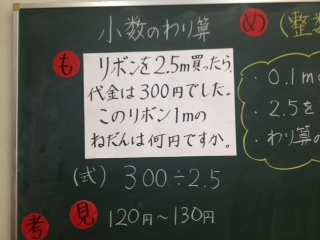 小数のわり算
も
リボンを2.5m買ったら、
代金は300円でした。
このリボン1mの
ねだんは何円ですか。
(式) 300÷2.5
考 見 120円~130円
め (整数
・0.1m
・2.5を
・わり算の